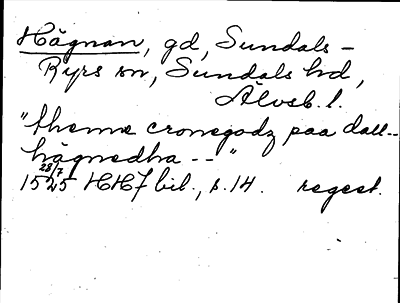 Hägnan, gd, Sundals-
Ryrs sn, Sundals hd,
Älvsb. l.
"thenne cronegodz paa dall--
hägnedha -- "
1525 28/7 HH7 bil., s. 14. regest.